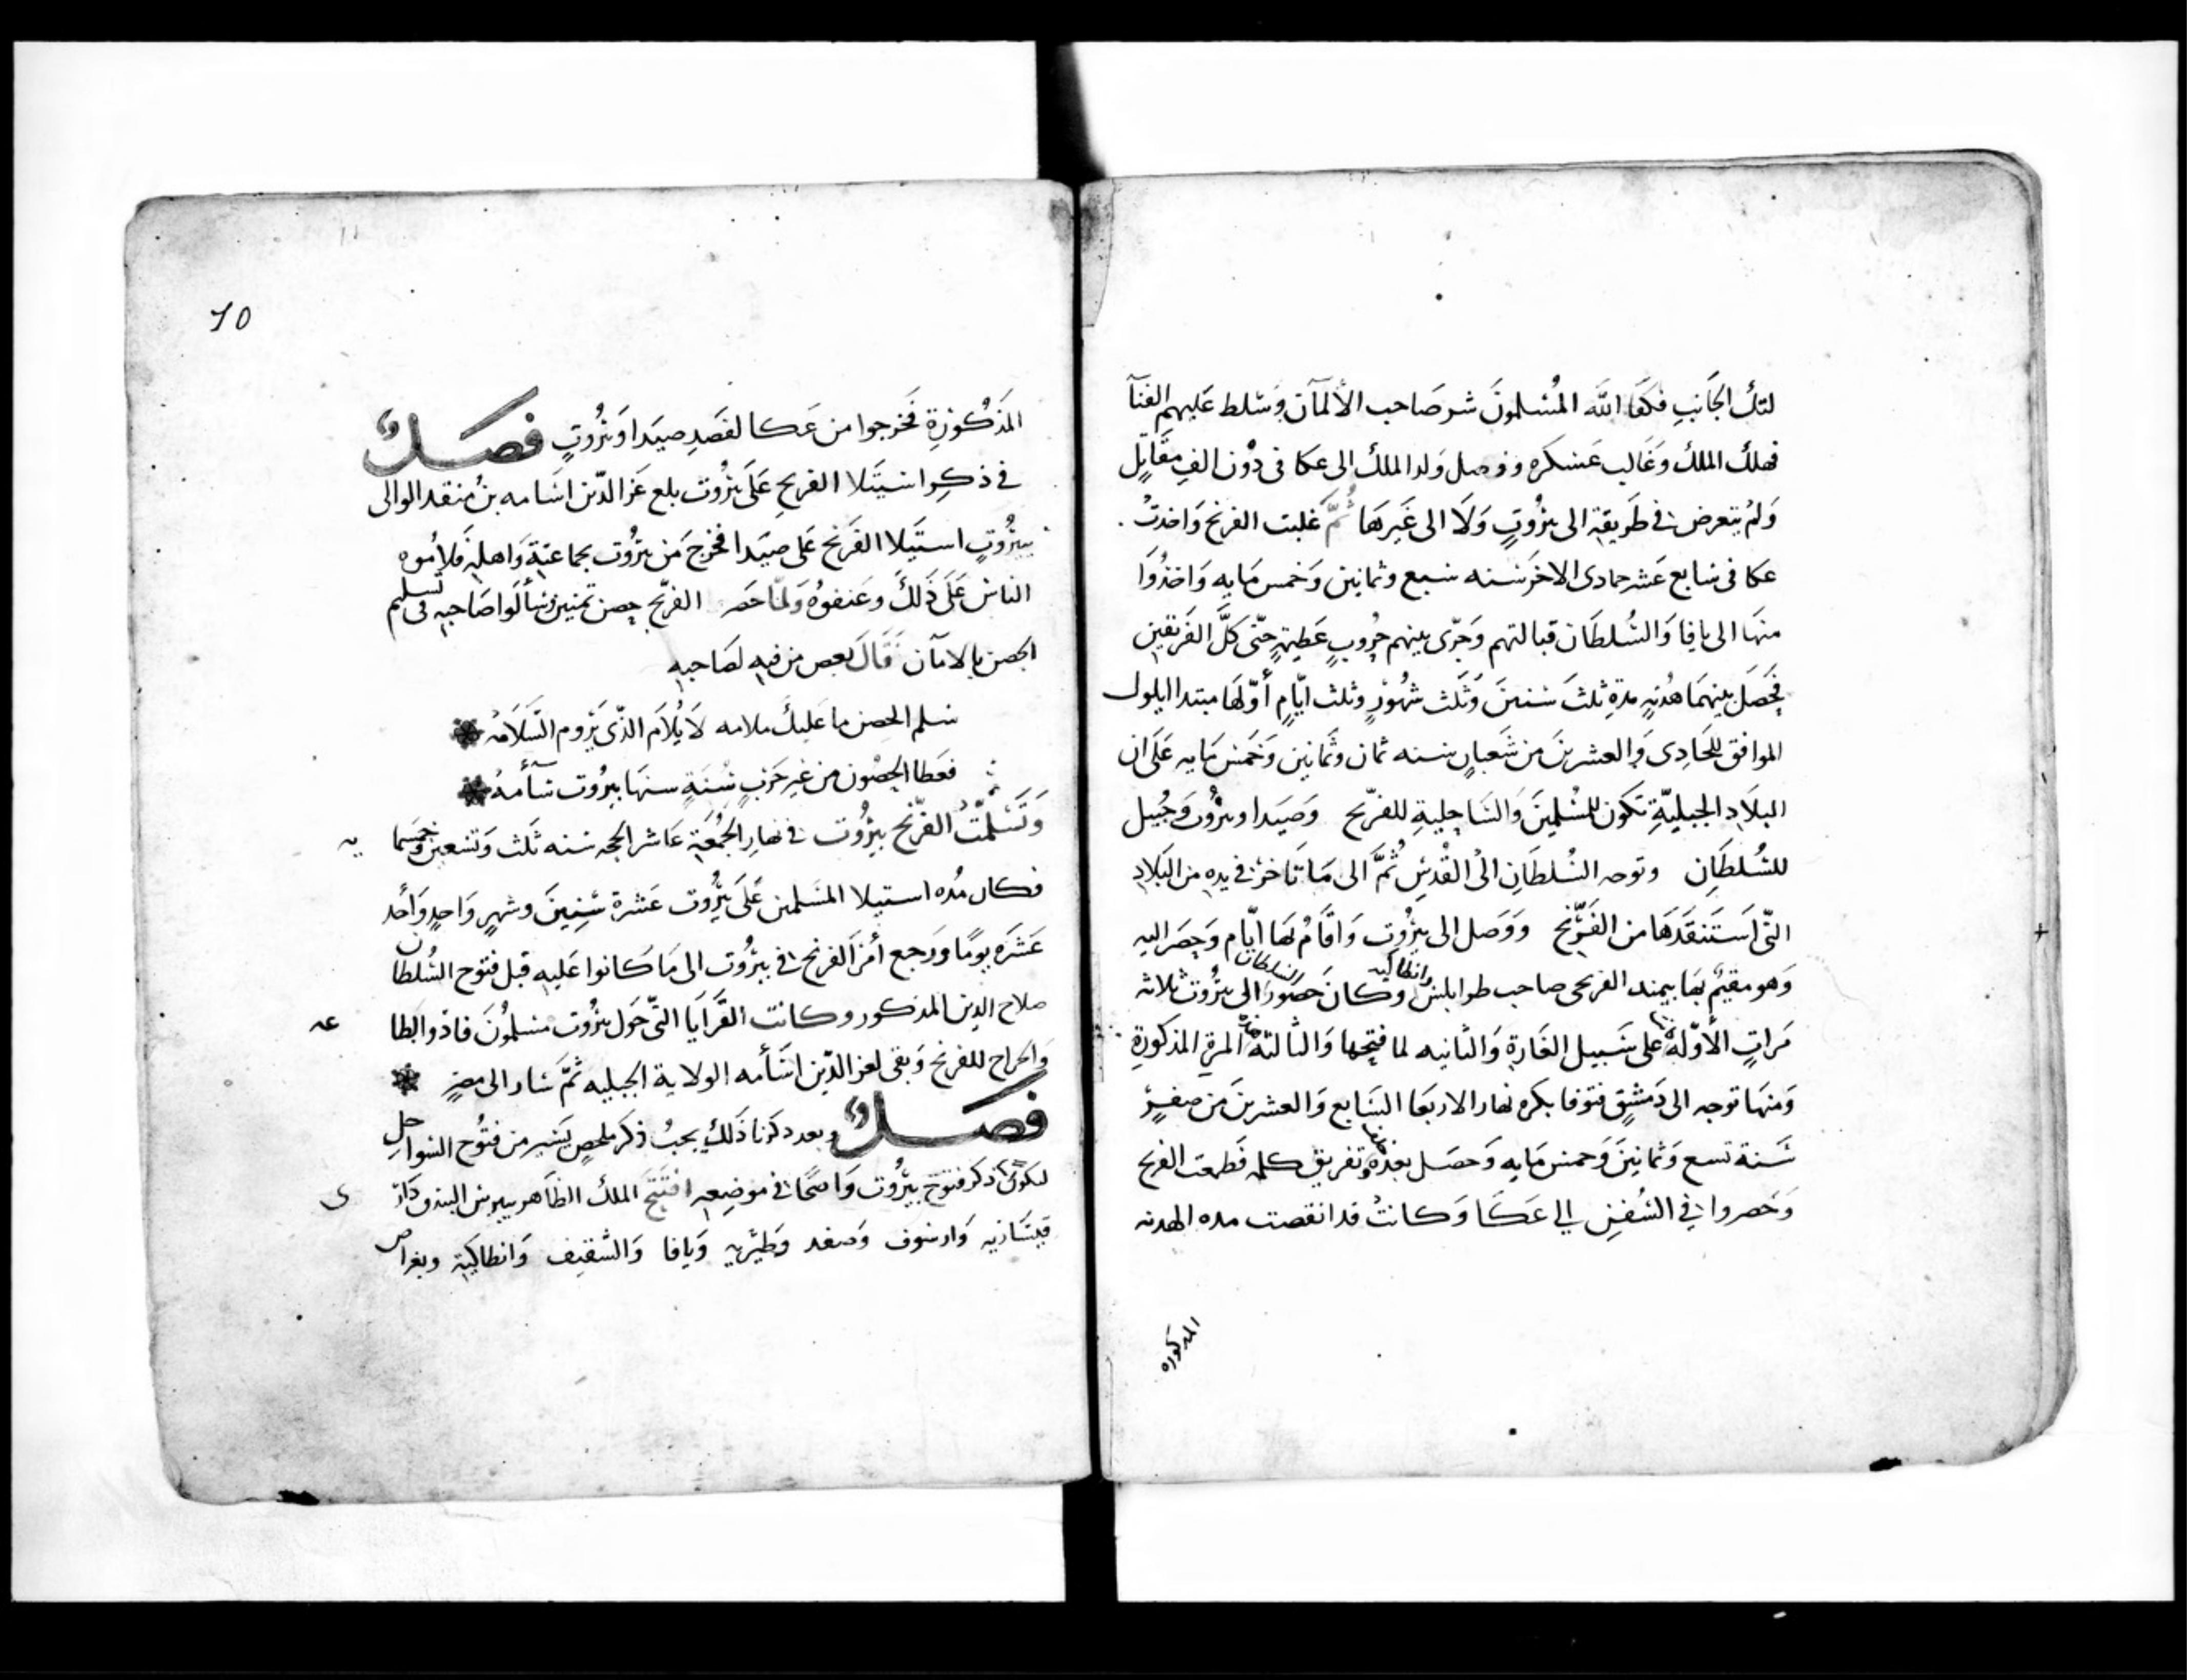 لتلك الجَانبِ فكفَا اللّه المُسْلمونَ شر صَاحب الألمآن وَسَلط عَليهم الفنآ
فهلك الملك وَغَالب عَسْكره ووصل وَلد الملك الى عكا فى دُون الف مقَاتِل
وَلمْ يتعرض في طَريقهِ الى بيرُوتٍ وَلَا الى غَيرهَا ثُمَّ غلبت الفرنج وَاخدتْ
عكا فى سَابع عَشر جمادى الاخر سَنه سبع وثمانين وَخمس مَايه وَاخذُوَا
منهَا الى يافا وَالسُلطَان قبالتهم وَجَرَى بينهم حُروبٍ عَظيمةٍ حتّى كلَّ الفَريقين
فحَصَلَ بينهمَا هُدْنهٍ مدةِ ثلثَ سْنينَ وَثَلث شهُورٍ وثلث ايّامٍ أوّلهَا مبتدا ايلول
الموافق للحَادِى وَالعشرينَ من شَعبانٍ سنه ثمان وثَمَانين وَخَمسْ مَايه عَلَى ان
البلَادِ الجبليّةِ تكون للمُسْلمِينَ وَالسَاحِليةِ للفرنج وَصَيدا وبيرُوت وَجُبيل
للسُلطَانِ وتوجه السُلطَانِ الىْ القُدسِ ثُمَّ الى مَا تَاخرَ في يدهِ من البَلادِ
التّى اَستَنقَدَهَا من الفَرنْج وَوَصل الى بيرُوتِ وَاقَامُ بهَا ايّام وَحضَر اليه
وَهو مقيمٌ بهَا بيمند الفرنجى صاحب طرابلسْ وانطاكيه وَكانَ حضور السلطان الى بيرُوت ثلاثه
مَراتٍ الأوّله على سَبيل الغَارةِ وَالثانيه لما فتحها وَالثالثه هذه المرةِ المذكورةِ
وَمنهَا توجه الى دَمشقٍ فتوفا بكره نهار الاربعَا السَابع وَالعشرينَ من صفرٍ
سَنة تسع وَثمَانينَ وَخمس مَايه وَحصَل بعدْهُ تفريق كلمه فَطمعت الفرنج
وَحَصروا في السُفنِ الى عَكَّا وَكانتْ قد انقصت مده الهدنه
المدكوره
10
المَذكُورَةِ فَخرجوا من عَكا لقَصَدِ صيَدا وَبيرُوتٍ فَصَـــلٌ
في ذكرِ اسْتيَلا الفرنج عَلَى بيرُوت بلع عَز الدّين اسَامه بنُ منقد الوالى
ببيرُوتٍ استيَلا الفَرنج عَلى صيَدا فخرجَ مَن بيرُوت بجماعتهِ وَاهلهِ فَلامُوه
الناسْ عَلَى ذَلكَ وَعَنفوُه وَلمّا حَصر الفرنج حِصن تبنين وَسَألوَا صَاحبهِ فى تسليم
الحصن بالامآن فَقَالَ بعص من فيهِ لصَاحبهِ
سَلم الحصنِ ما عَليكَ ملامه لَا يُلامَ الذّى يَرُوم السَلَامَهْ
فعَطا الحصُون من غير حَربٍ سُنَةٍ سنهَا بيرُوت سَآمهُ
وَتَسْلَمَّتْ الفرَنْج بيرُوت في نهار الجمُعَةِ عَاشر الحجه سَنه ثَلث وَتسْعين وَخمسما
يه
فكان مُده استيلا المسَلمين عَلَى بيرُوت عَشرة سْنِينَ وشهرٍ وَاحدٍ وَأحد
عَشَره يومًا وَرَجع أمرَ الفرنج في بيرُوت الى مَا كانوا عَليهِ قبل فتوح السُلطان
صلاح الدين المذكور وكانت القَرَايَا التّى حَول بيرُوت مسْلمُونَ فادوا الطا
عه
وَالخراج للفرنج وَبقى لعز الدّين اسَأمه الولاية الجبليه ثمَّ سَار الى مصٍر
فَصَـــلٌ وبعد دكرنا ذَلك يجبُ ذكر ملخصٍ يَسير من فتُوح السَواحلِ
ليكونَ ذكر فتوح بيرُوت وَاضحًا في موضعهِ افتَتَحَ الملك الظَاهر بيبرسْ البندقدَار
ى
قيسَاريه وَارسُوف وَصَفد وَطبَريه وَيافا وَالشقيف وَانطاكيَة وبغراص